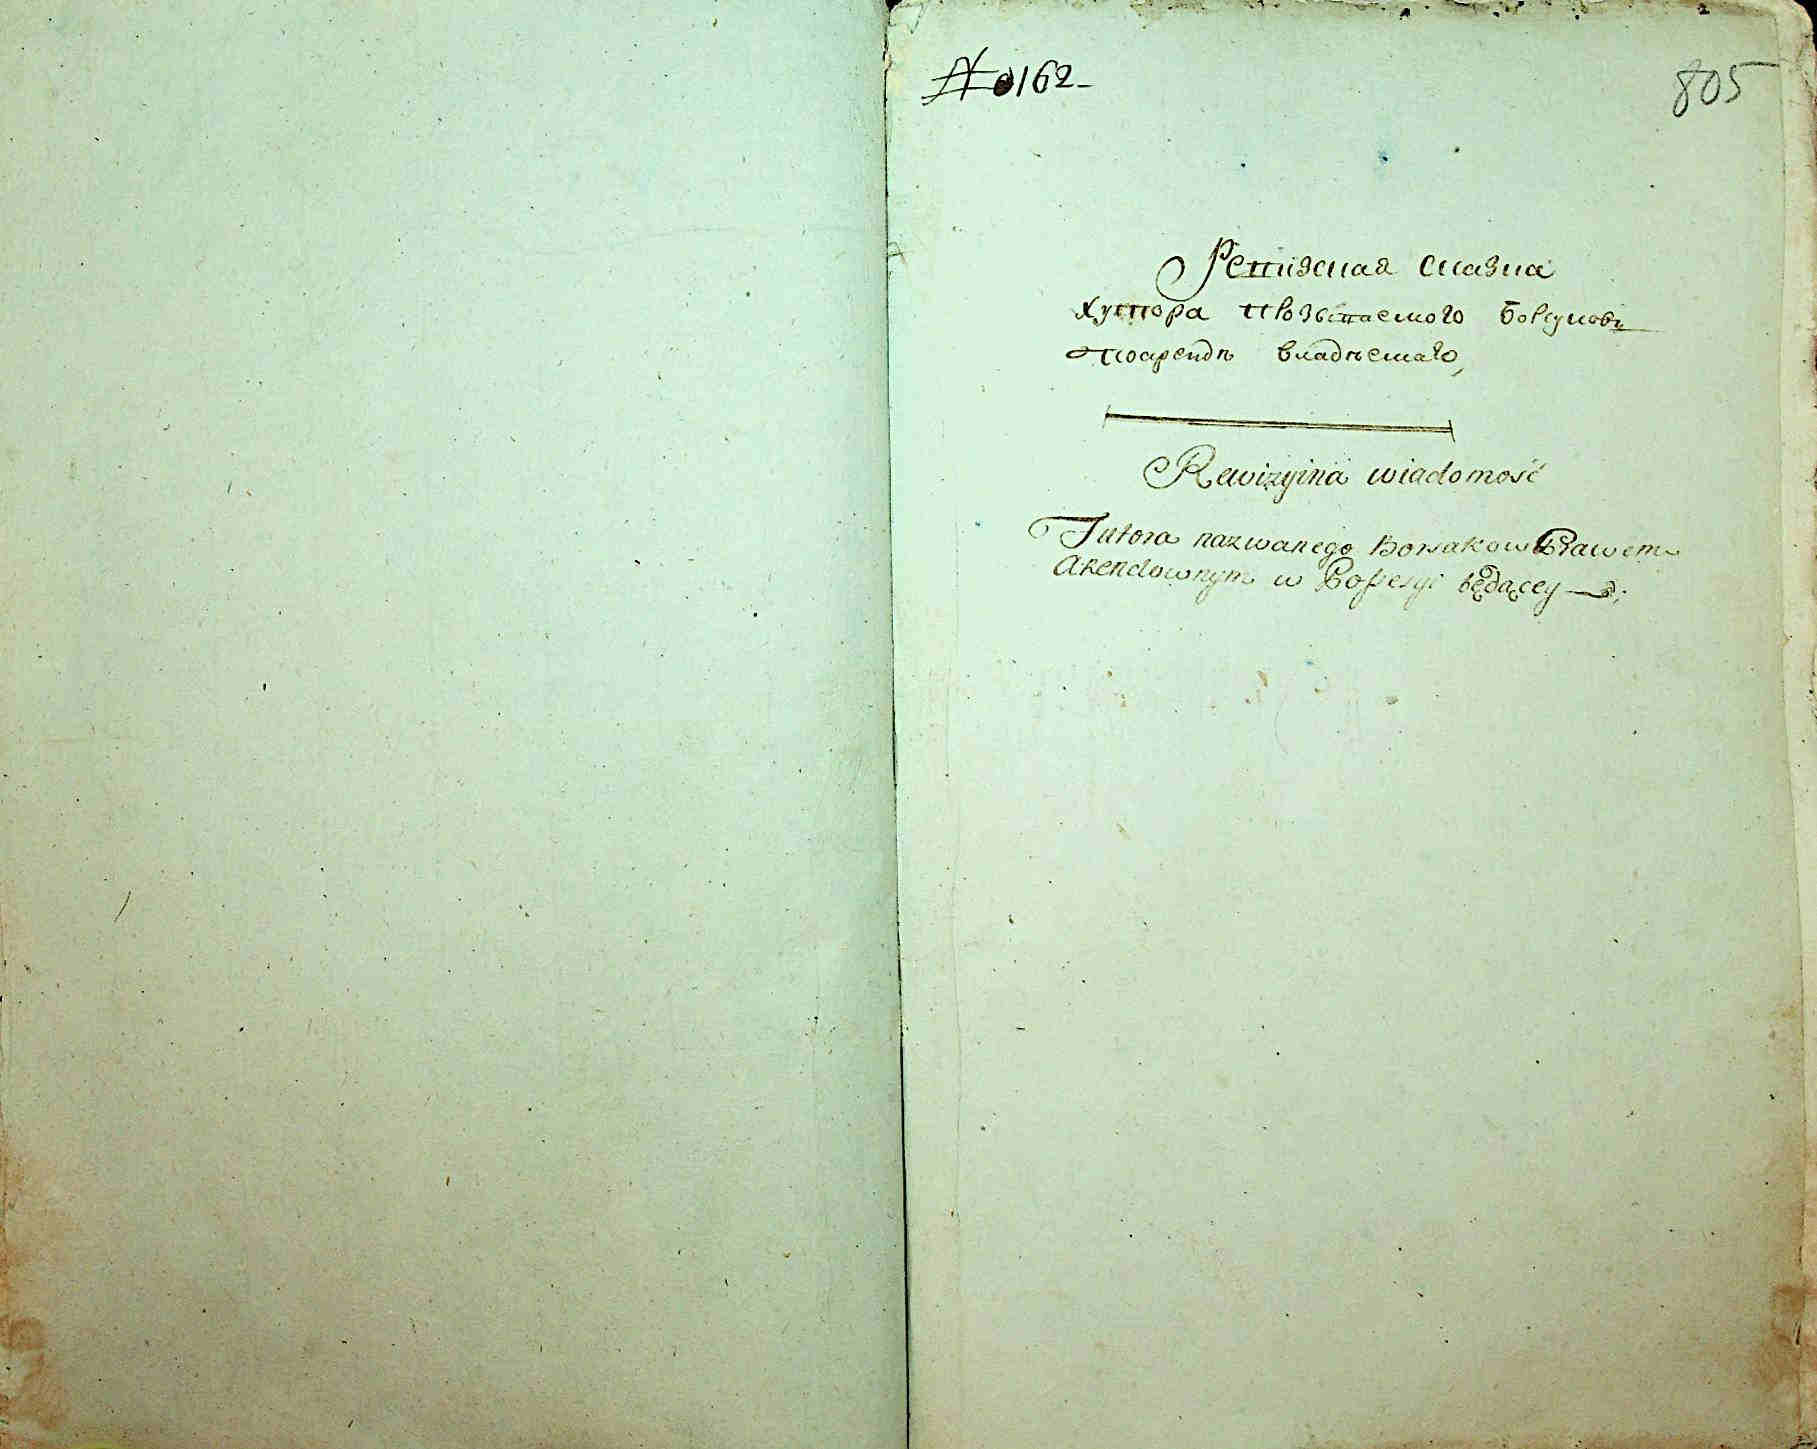 № 162
805
Ревизская сказка
хутора называемого Борсуковъ
поарендѣ владѣемаго,
Rewizyina wiadomość
Futora nazwanego Borsakow Prawem
Arendownym w Possesyi będącey